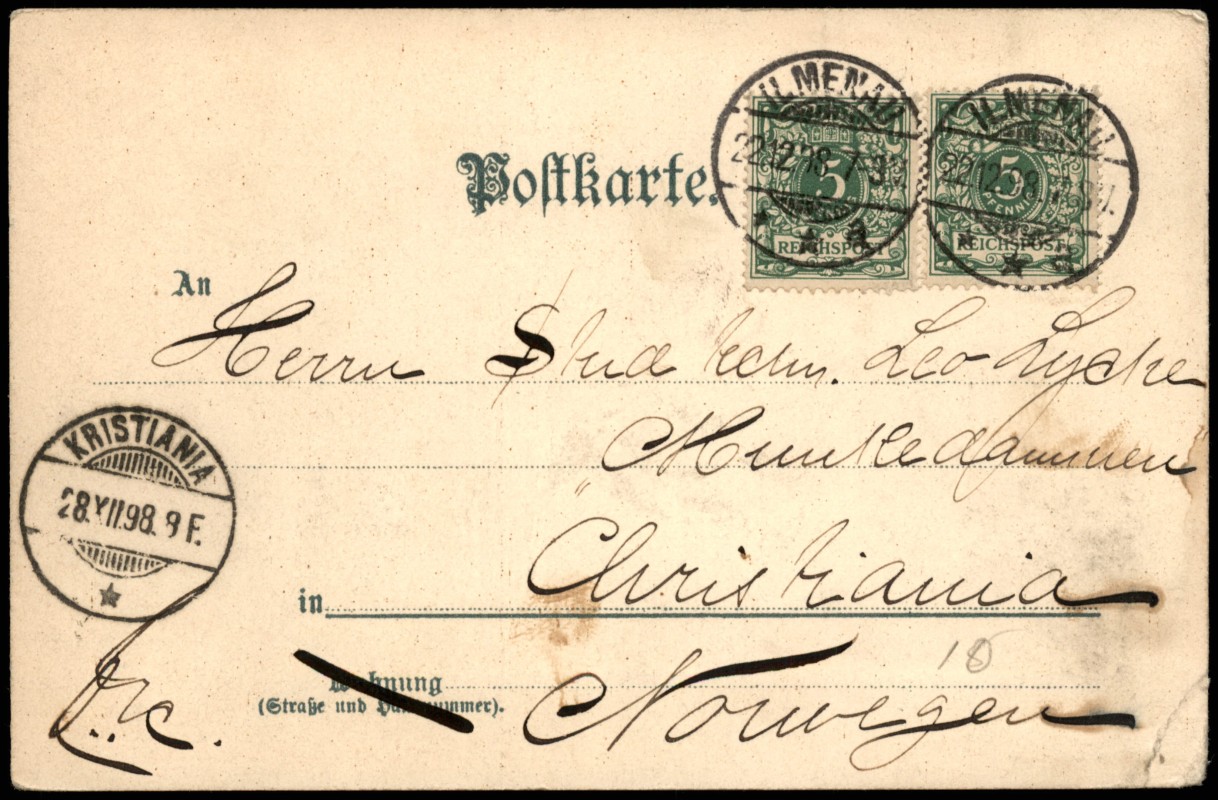 Postkarte.
ILMENAU
22.12.98. 7-8N.
* * a
5
REICHSPOST
ILMENAU
22.12.98. 7-8N.
* a
5
PFENNIG
REICHSPOST
An
Herrn Stud techn. Leo Lycke
Munkedammen
KRISTIANIA
28.XII.98. 8 F.
Christiania
in
Wohnung
(Straße und Hausnummer).
Norwegen
10